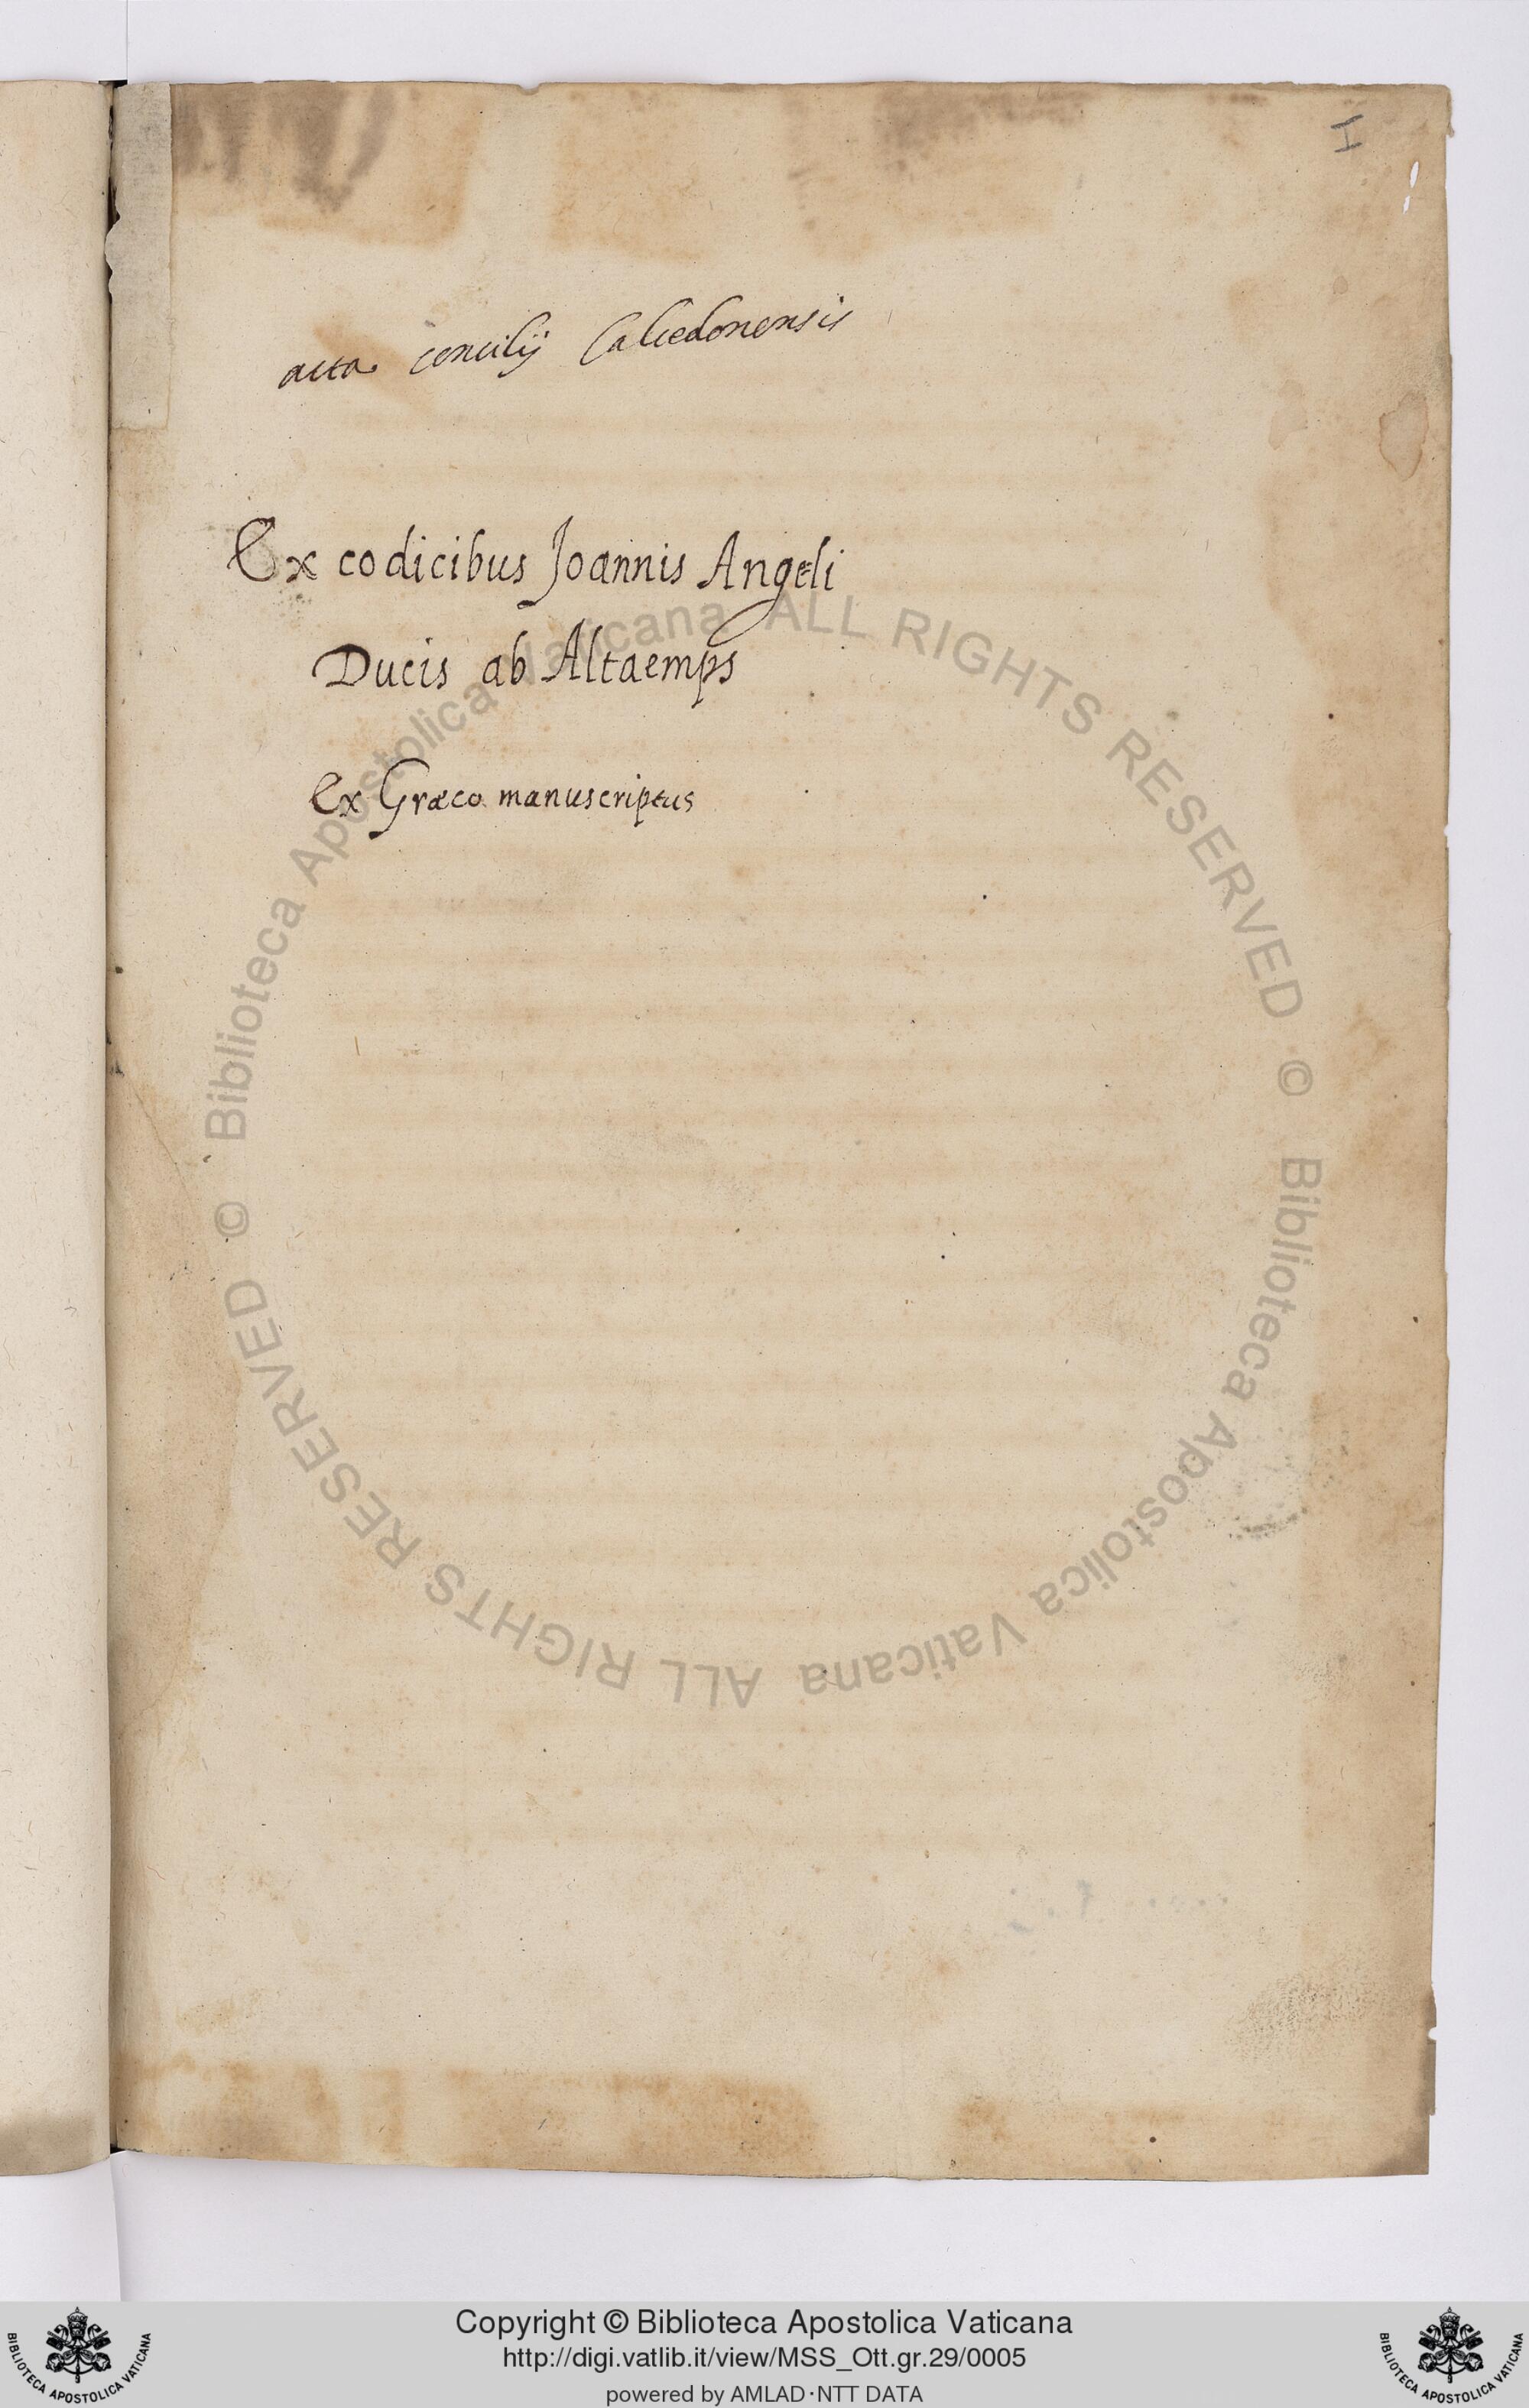 I
acta concilij Calcedonensis
Ex codicibus Joannis Angeli
Ducis ab Altaemps
Ex Græco manuscriptus
© Biblioteca Apostolica Vaticana ALL RIGHTS RESERVED
© Biblioteca Apostolica Vaticana ALL RIGHTS RESERVED
Copyright © Biblioteca Apostolica Vaticana
http://digi.vatlib.it/view/MSS_Ott.gr.29/0005
powered by AMLAD·NTT DATA
BIBLIOTECA APOSTOLICA VATICANA
BIBLIOTECA APOSTOLICA VATICANA